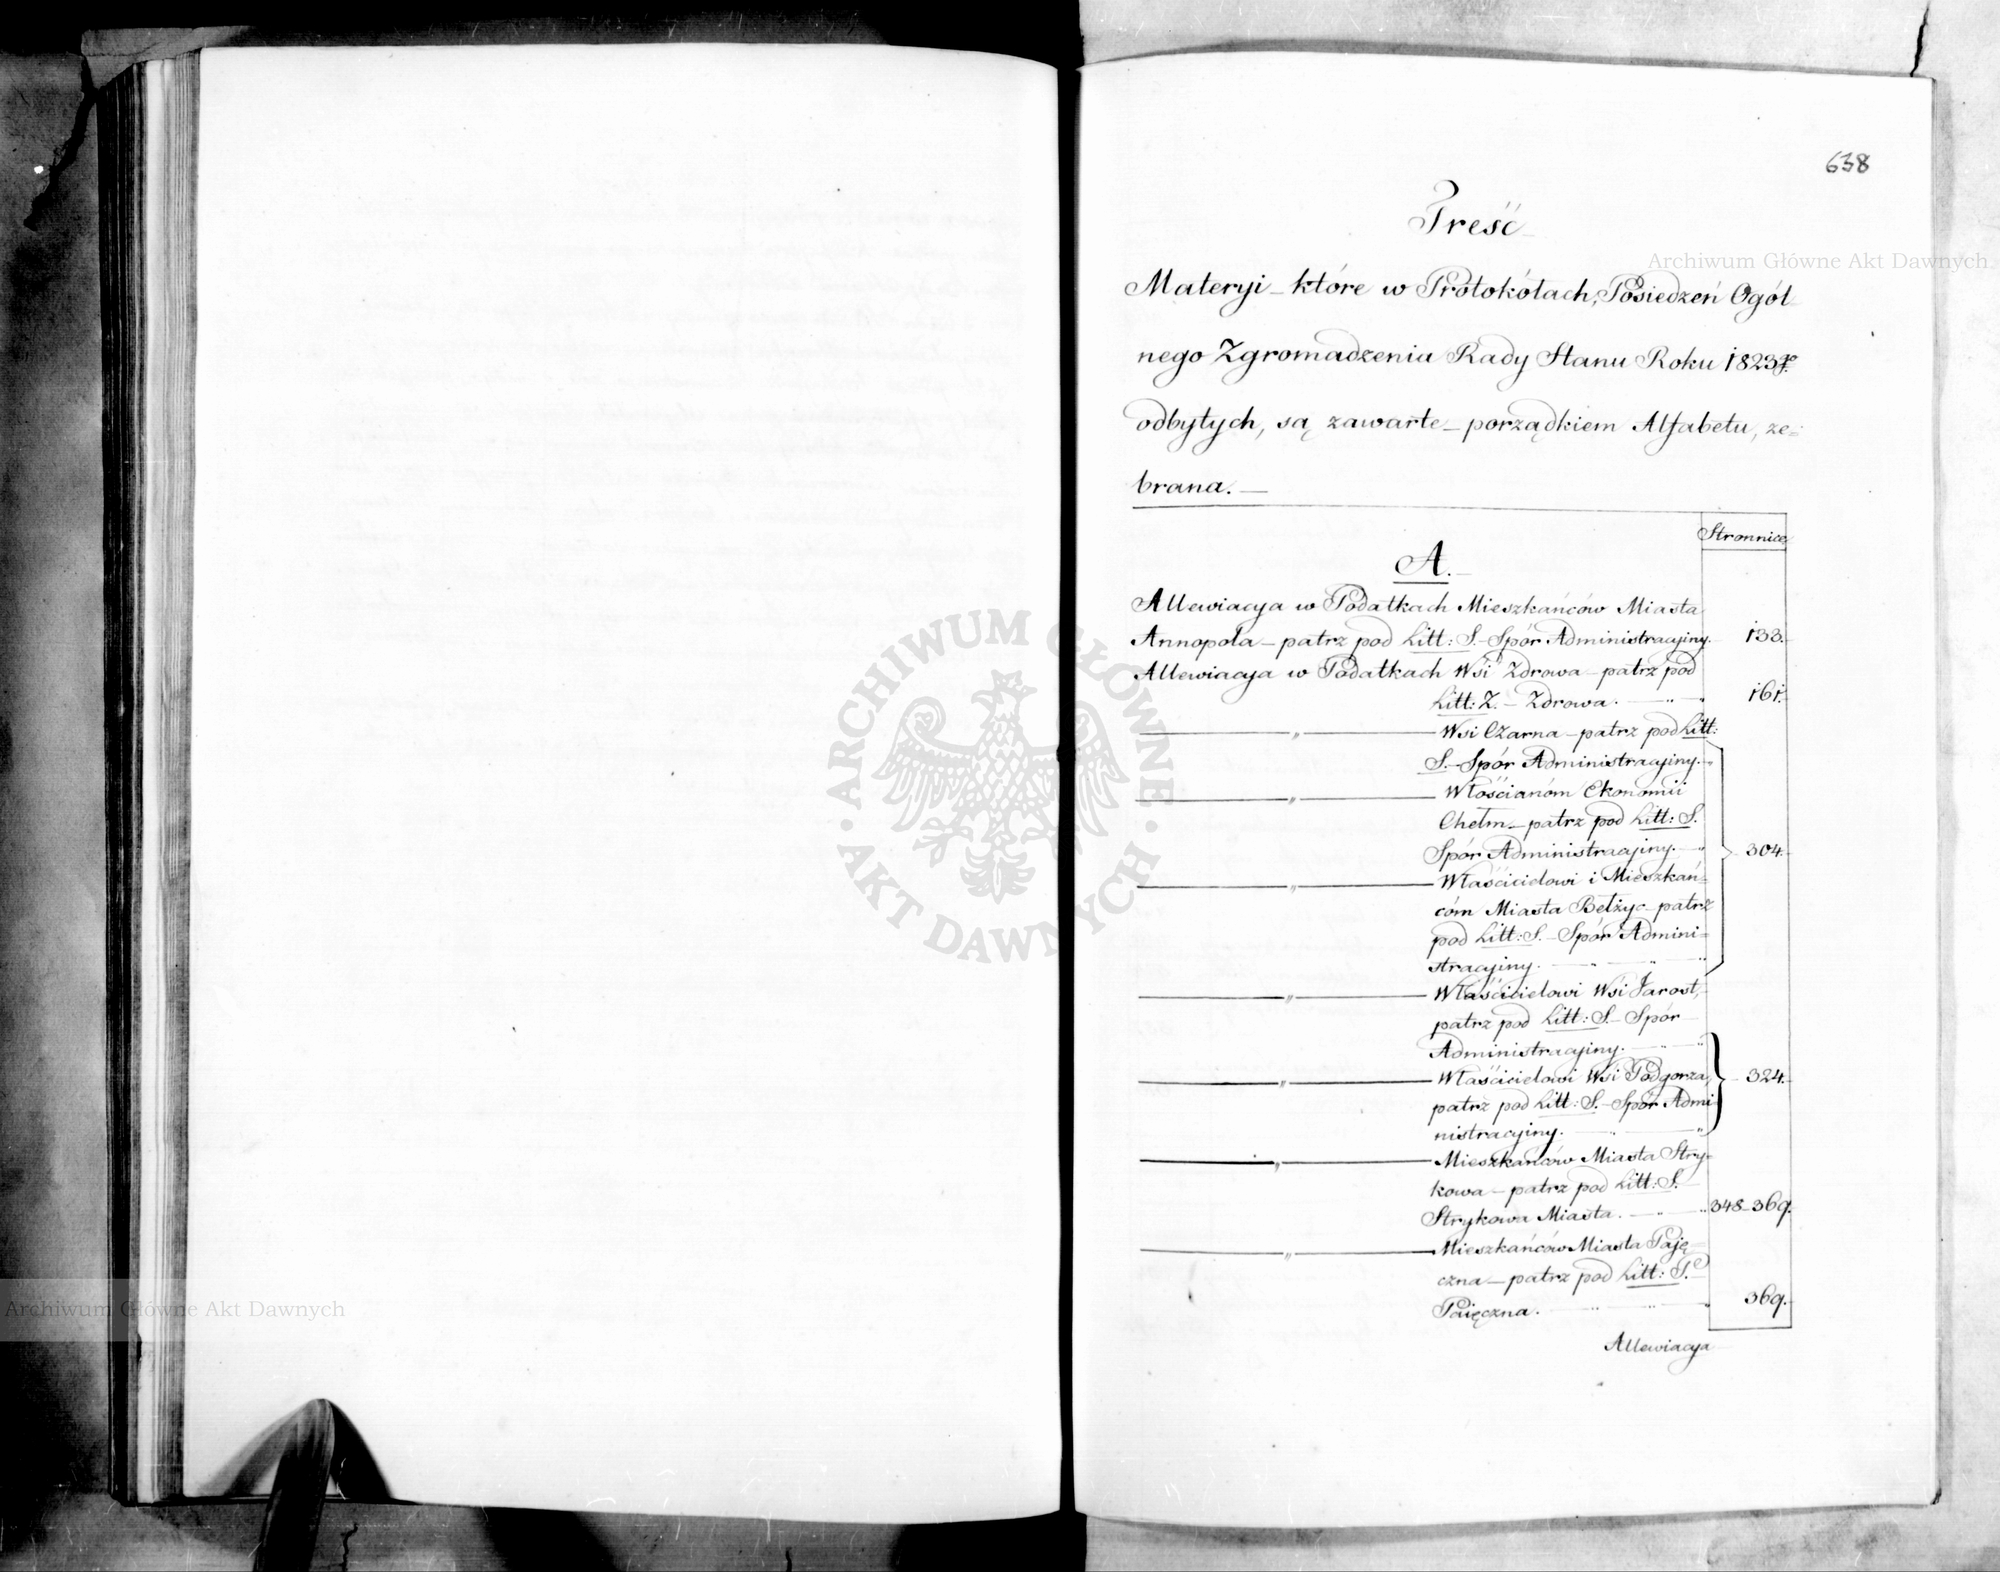 638
Treść
Materyi które w Protokółach, Posiedzeń Ogól
nego Zgromadzenia Rady Stanu Roku 1823go
odbytych, są zawarte porządkiem Alfabetu, ze=
brana.
Stronnice
A.
Allewiacya w Podatkach Mieszkańców Miasta
Annopola – patrz pod Litt: S. Spór Administracyiny. 133.
Allewiacya w Podatkach Wsi Zdrowa – patrz pod
Litt: Z. – Zdrowa. 161.
— „ — Wsi Czarna – patrz pod Litt:
S. – Spór Administracyiny. „
— „ — Włościanóm Ekonomii
Chełm – patrz pod Litt: S.
Spór Administracyiny. — „ 304.
— „ — Właścicielowi i Mieszkań=
cóm Miasta Bełżyc – patrz
pod Litt: S. – Spór Admini=
stracyiny. — „ — „
— „ — Właścicielowi Wsi Jarost,
patrz pod Litt: S. – Spór
Administracyiny. — „ — „
— „ — Właścicielowi Wsi Podgorza, 324.
patrz pod Litt: S. – Spór Admi
nistracyiny. — „ — „
— „ — Mieszkańców Miasta Stry=
kowa – patrz pod Litt: S.
Strykowa Miasta. — „ — „ 348–369.
— „ — Mieszkańców Miasta Paję=
czna – patrz pod Litt: P.
Paięczna. — „ — „ — „ 369.
Allewiacya
Archiwum Główne Akt Dawnych
ARCHIWUM GŁÓWNE
· AKT DAWNYCH ·
Archiwum Główne Akt Dawnych